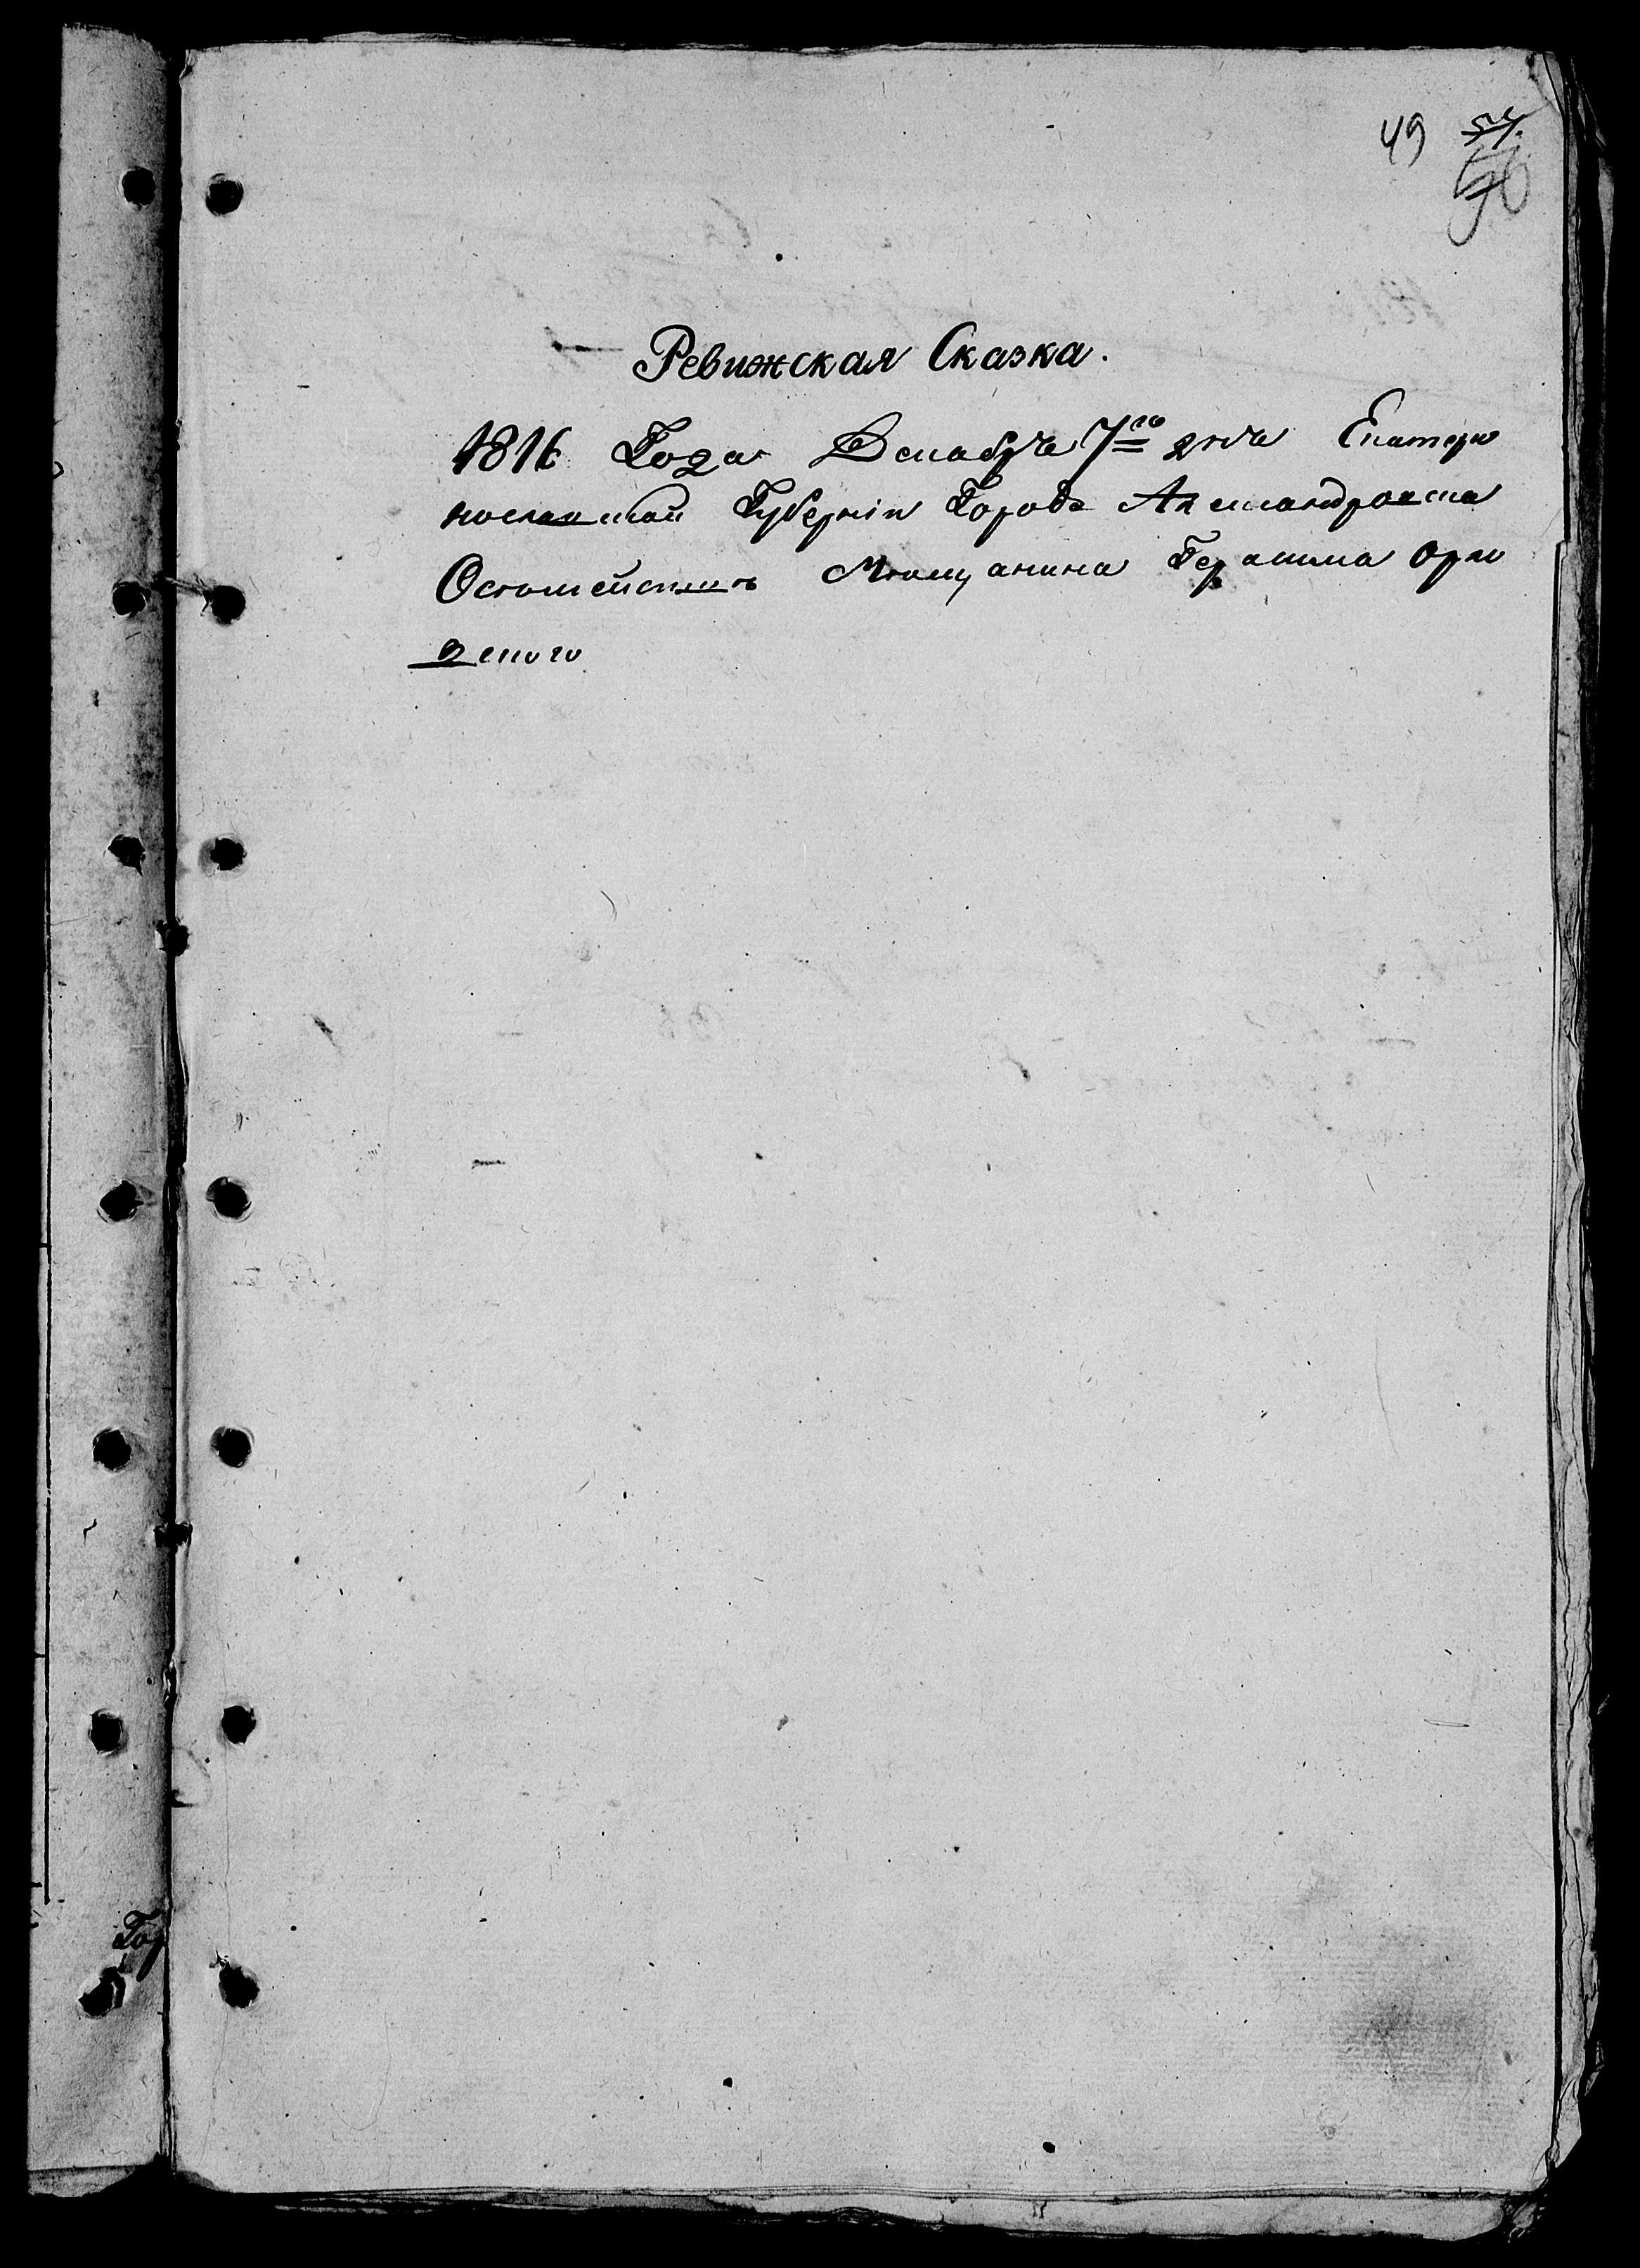 49 54.
50
Ревижская Сказка.
1816 Года Декабря 7го дня Екатери
нославской Губернiи Города Александровска
О состоящемъ Мещанина Герасима Ори
вского
Гор